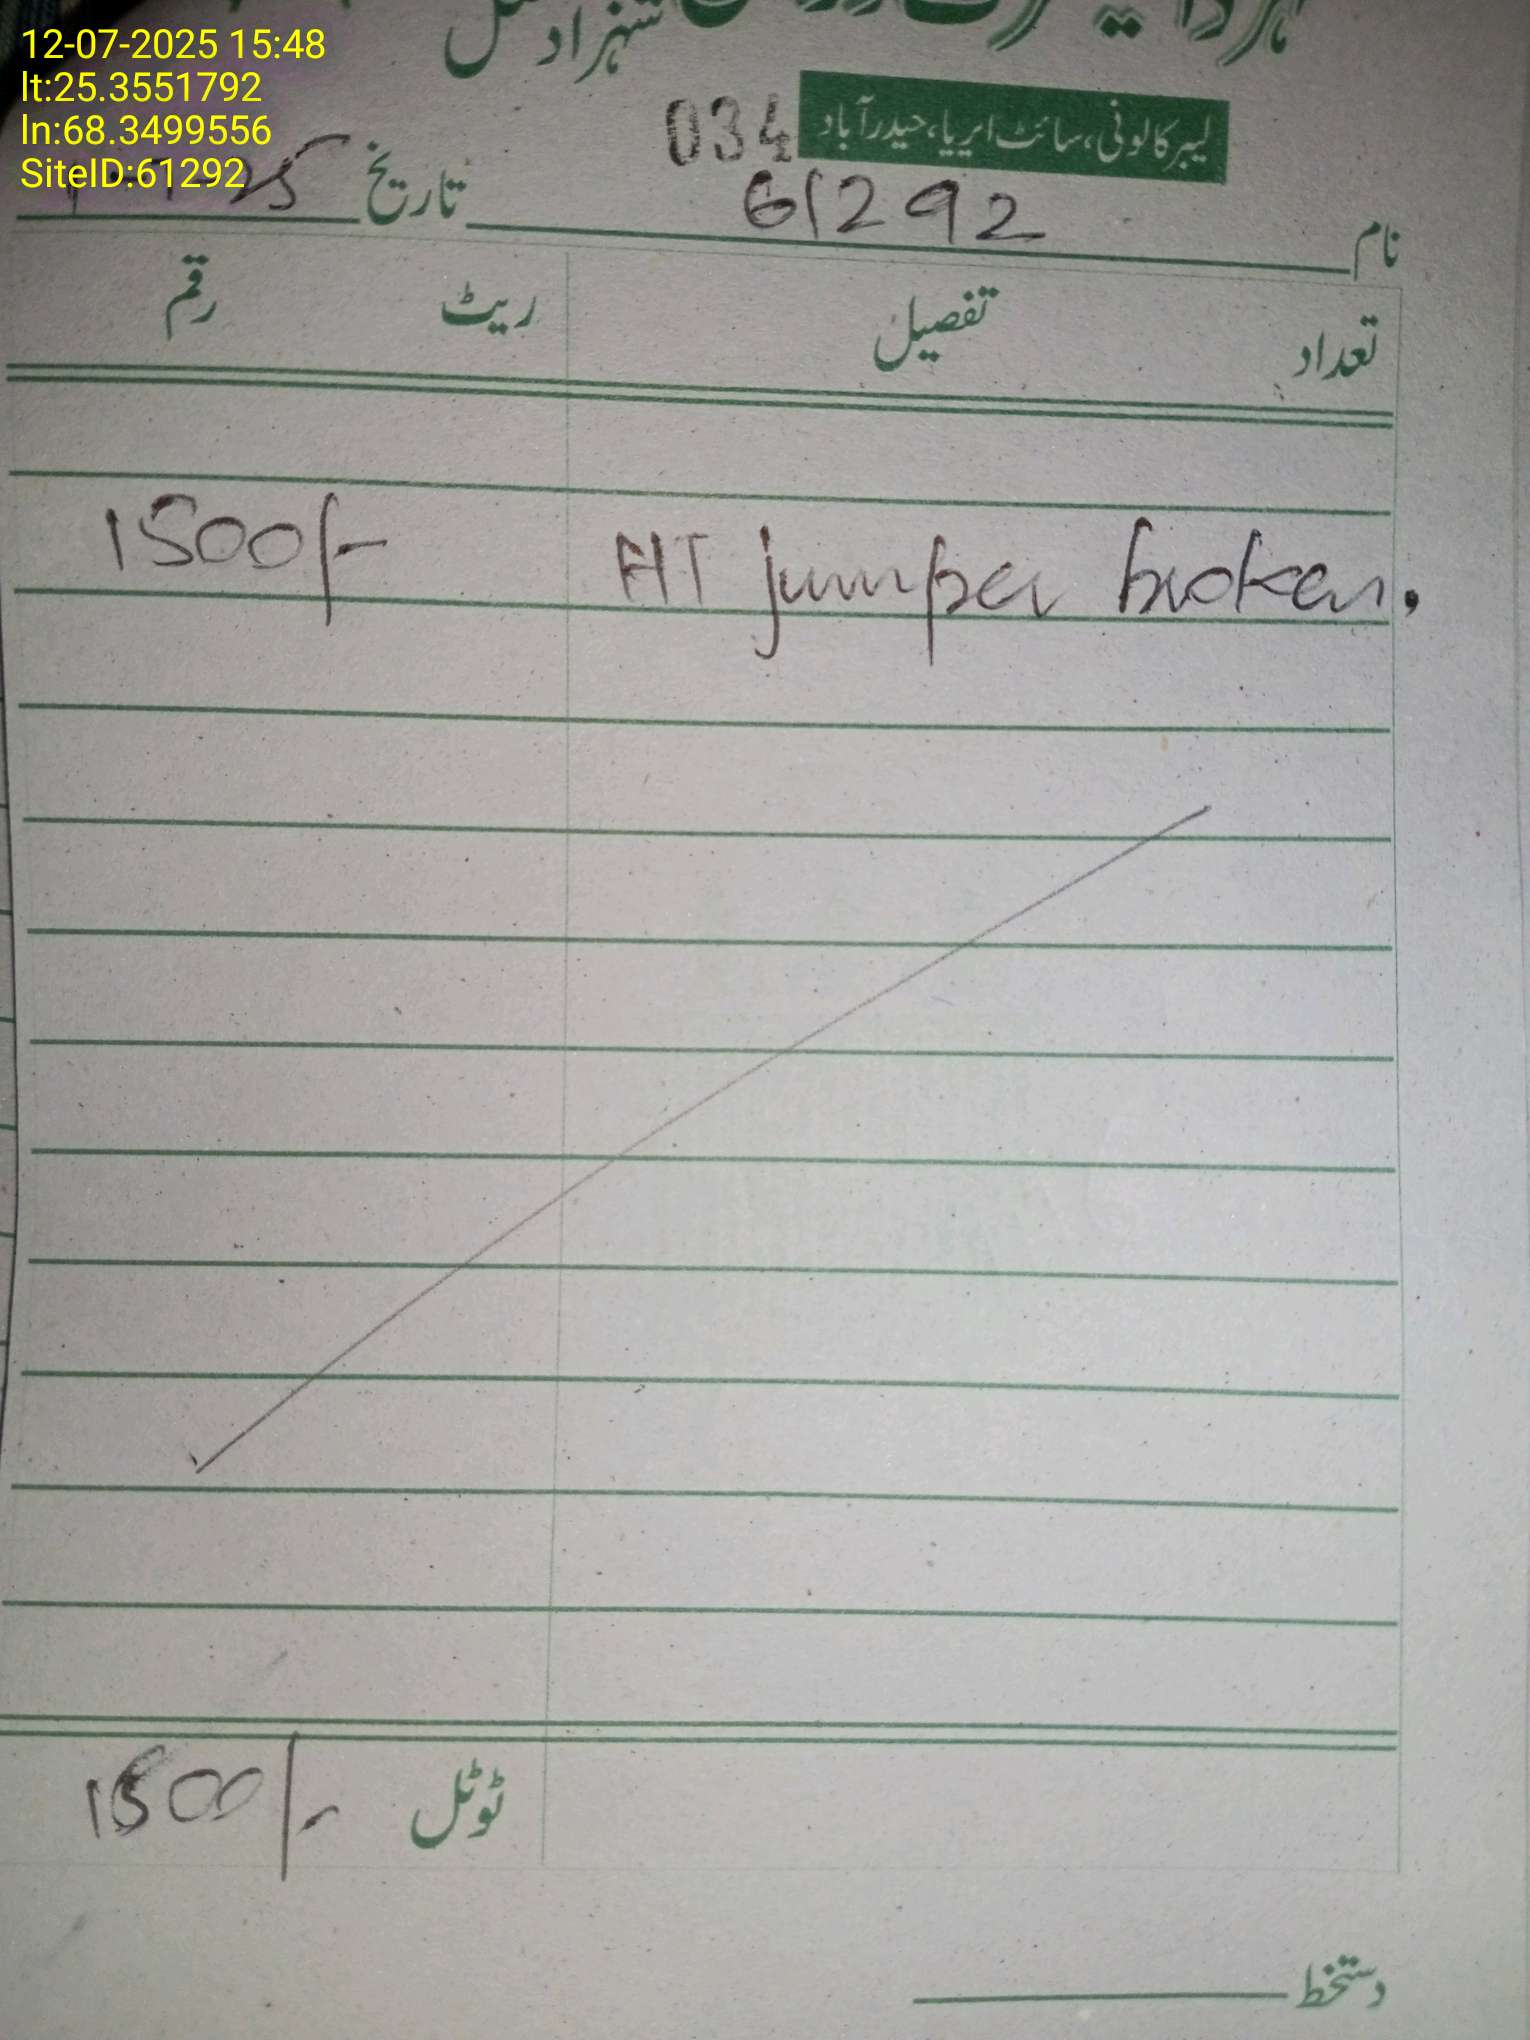 12-07-2025 15:48
lt:25.3551792
ln:68.3499556
SiteID:61292
شہزاد
034 لیبر کالونی، سائٹ ایریا، حیدرآباد
نام 61292 تاریخ
تعداد تفصیل ریٹ رقم
HT jumper broken. 1500/-
ٹوٹل 1500/-
دستخط